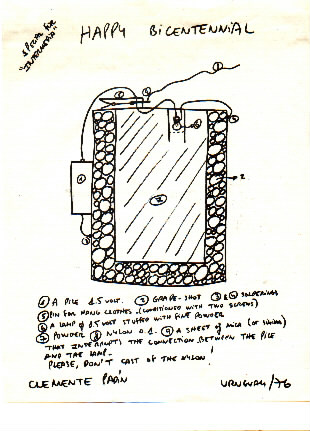 HAPPY BICENTENNIAL
SPECIAL FOR
① A PILE 1.5 VOLT. ② GRAPE-SHOT ③ & ④ SOLDERINGS
⑤ PIN FOR HANG CLOTHES. (CONDITIONED WITH TWO SCREWS)
⑥ A LAMP OF 1.5 VOLT STUFFED WITH FINE POWDER
⑦ POWDER ⑧ NYLON ⑨ A SHEET OF MICA (OR SIMILAR)
THAT INTERRUPTS THE CONNECTION BETWEEN THE PILE
AND THE LAMP.
PLEASE, DON'T CAST OF THE NYLON!
CLEMENTE PADÍN URUGUAY/76